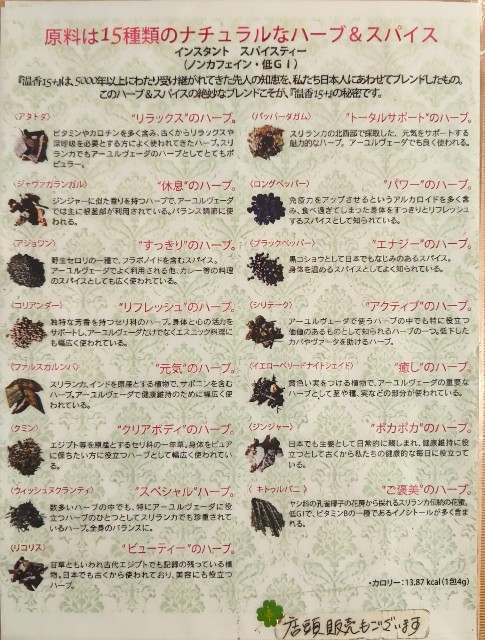 原料は15種類のナチュラルなハーブ＆スパイス
インスタント スパイスティー
（ノンカフェイン・低GI）
『温香15+』は、5000年以上にわたり受け継がれてきた先人の知恵を、私たち日本人にあわせてブレンドしたもの。
このハーブ＆スパイスの絶妙なブレンドこそが、『温香15+』の秘密です。
〈アタトダ〉 “リラックス”のハーブ。
ビタミンやカロチンを多く含み、古くからリラックスや
深呼吸を必要とする方によく使われてきたハーブ。スリ
ランカでもアーユルヴェーダのハーブとしてとてもポ
ピュラー。
〈ジャヴァガランガル〉 “休息”のハーブ。
ジンジャーに似た香りを持つハーブで、アーユルヴェーダ
では主に根茎部が利用されている。バランス調節に使
われる。
〈アジョワン〉 “すっきり”のハーブ。
野生セロリの一種で、フラボノイドを含むスパイス。
アーユルヴェーダでよく利用される他、カレー等の料理
のスパイスとしても広く使われている。
〈コリアンダー〉 “リフレッシュ”のハーブ。
独特な芳香を持つセリ科のハーブ。身体と心の活力を
サポートし、アーユルヴェーダだけでなくエスニック料理に
も幅広く使われている。
〈ファルスカルンバ〉 “元気”のハーブ。
スリランカ、インドを原産とする植物で、サポニンを含む
ハーブ。アーユルヴェーダで健康維持のために幅広く使
われている。
〈クミン〉 “クリアボディ”のハーブ。
エジプト等を原産とするセリ科の一年草。身体をピュア
に保ちたい方に役立つハーブとして幅広く使われてい
る。
〈ウィッシュヌクランティ〉 “スペシャル”ハーブ。
数多いハーブの中でも、特にアーユルヴェーダに役立
つハーブのひとつとしてスリランカでも珍重されて
いるハーブ。全身のバランスに。
〈リコリス〉 “ビューティー”のハーブ。
甘草ともいわれ古代エジプトでも記録の残っている植
物。日本でも古くから使われており、美容にも役立つ
ハーブ。
〈パッパーダガム〉 “トータルサポート”のハーブ。
スリランカの北西部で採取した、元気をサポートする
魅力的なハーブ。アーユルヴェーダでも良く使われる。
〈ロングペッパー〉 “パワー”のハーブ。
免疫力をアップさせるというアルカロイドを多く含
み、食べ過ぎてしまった身体をすっきりとリフレッシュ
するスパイスとして知られている。
〈ブラックペッパー〉 “エナジー”のハーブ。
黒コショウとして日本でもなじみのあるスパイス。
身体を温めるスパイスとしてよく知られている。
〈シリテーク〉 “アクティブ”のハーブ。
アーユルヴェーダで使うハーブの中でも特に役立つ
価値のあるものとして知られるハーブの一つ。低下した
カパやヴァータを助けるハーブ。
〈イエローベリードナイトシェイド〉 “癒し”のハーブ。
黄色い実をつける植物で、アーユルヴェーダの重要な
ハーブとして茎や種、実などの部分が使われている。
〈ジンジャー〉 “ポカポカ”のハーブ。
日本でも生姜として日常的に親しまれ、健康維持に役
立つとして古くから私たちの健康的な毎日に役立って
いる。
〈キトゥルパニ〉 “ご褒美”のハーブ。
ヤシ科の孔雀椰子の花房から採れるスリランカ伝統の花蜜。
低GIで、ビタミンBの一種であるイノシトールが多く含ま
れる。
・カロリー：13.87 kcal（1包4g）
店頭販売もございます